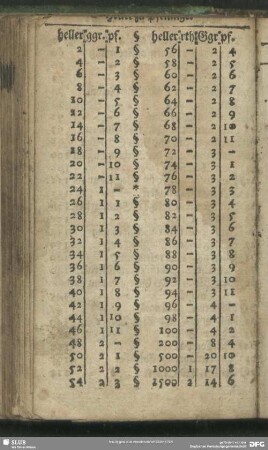 heller. ggr. pf. § heller. rthl Ggr. pf.
2 — 1 § 56 — 2 4
4 — 2 § 58 — 2 5
6 — 3 § 60 — 2 6
8 — 4 § 62 — 2 7
10 — 5 § 64 — 2 8
12 — 6 § 66 — 2 9
14 — 7 § 68 — 2 10
16 — 8 § 70 — 2 11
18 — 9 § 72 — 3 —
20 — 10 § 74 — 3 1
22 — 11 § 76 — 3 2
24 1 — § 78 — 3 3
26 1 1 § 80 — 3 4
28 1 2 § 82 — 3 5
30 1 3 § 84 — 3 6
32 1 4 § 86 — 3 7
34 1 5 § 88 — 3 8
36 1 6 § 90 — 3 9
38 1 7 § 92 — 3 10
40 1 8 § 94 — 3 11
42 1 9 § 96 — 4 —
44 1 10 § 98 — 4 1
46 1 11 § 100 — 4 2
48 2 — § 200 — 8 4
50 2 1 § 500 — 20 10
52 2 2 § 1000 1 17 8
54 2 3 § 1500 2 14 6
SLUB
DFG